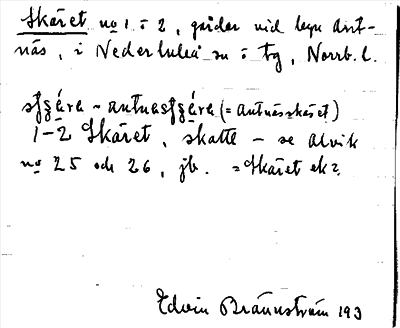 Skäret no 1 o 2, gårdar vid byn Ant-
näs, i Nederluleå sn o tg, Norrb. l.
antnas (= Antnässkäret)
1-2 Skäret, skatte - se Alvik
no 25 och 26, jb. = Skäret ek?
Edvin Brännström 193